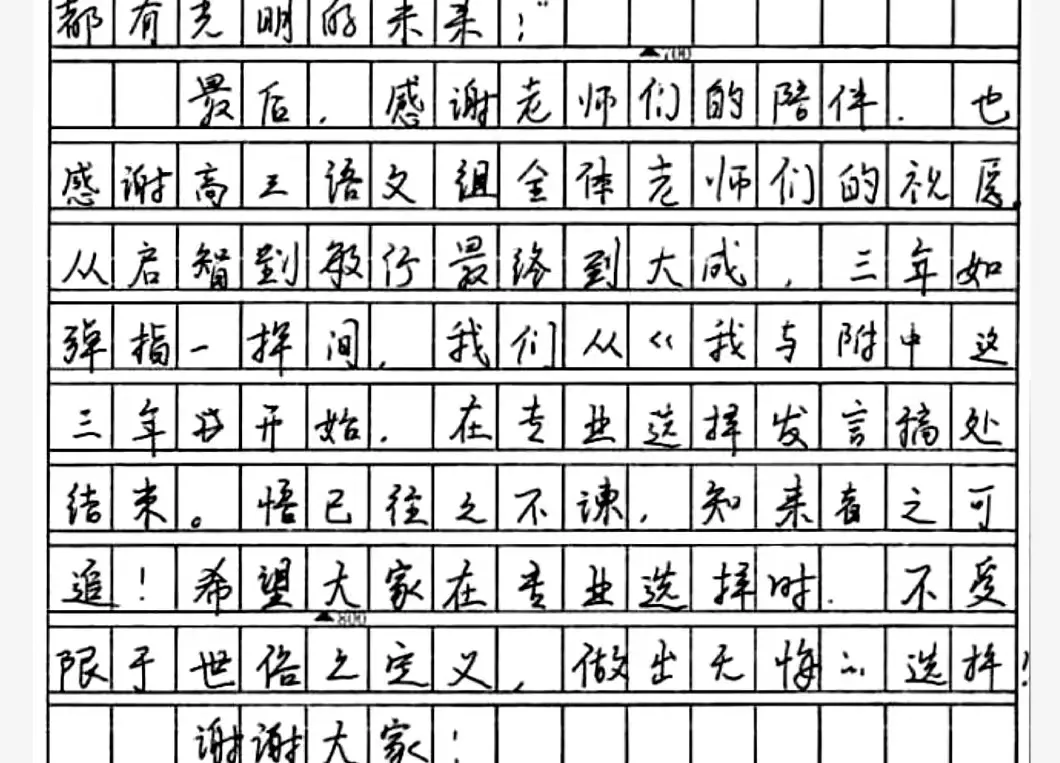 都有光明的未来！"
▲700
最后，感谢老师们的陪伴，也
感谢高三语文组全体老师们的祝愿，
从启智到敏行最终到大成，三年如
弹指一挥间，我们从《我与附中这
三年》开始，在专业选择发言稿处
结束。悟已往之不谏，知来者之可
追！希望大家在专业选择时，不受
▲800
限于世俗之定义，做出无悔的选择！
谢谢大家！